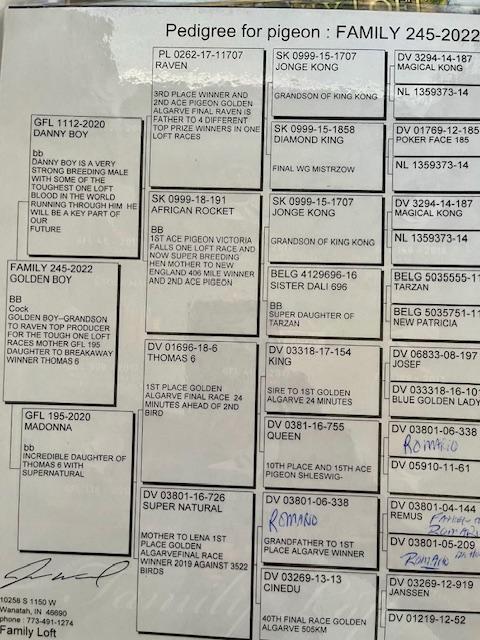 Pedigree for pigeon : FAMILY 245-2022
GFL 1112-2020
DANNY BOY
bb
DANNY BOY IS A VERY
STRONG BREEDING MALE
WITH SOME OF THE
TOUGHEST ONE LOFT
BLOOD IN THE WORLD
RUNNING THROUGH HIM HE
WILL BE A KEY PART OF
OUR
FUTURE
FAMILY 245-2022
GOLDEN BOY
BB
Cock
GOLDEN BOY--GRANDSON
TO RAVEN TOP PRODUCER
FOR THE TOUGH ONE LOFT
RACES MOTHER GFL 195
DAUGHTER TO BREAKAWAY
WINNER THOMAS 6
GFL 195-2020
MADONNA
bb
INCREDIBLE DAUGHTER OF
THOMAS 6 WITH
SUPERNATURAL
10258 S 1150 W
Wanatah, IN 46690
phone : 773-491-1274
Family Loft
PL 0262-17-11707
RAVEN
3RD PLACE WINNER AND
2ND ACE PIGEON GOLDEN
ALGARVE FINAL RAVEN IS
FATHER TO 4 DIFFERENT
TOP PRIZE WINNERS IN ONE
LOFT RACES
SK 0999-18-191
AFRICAN ROCKET
BB
1ST ACE PIGEON VICTORIA
FALLS ONE LOFT RACE AND
NOW SUPER BREEDING
HEN MOTHER TO NEW
ENGLAND 406 MILE WINNER
AND 2ND ACE PIGEON
DV 01696-18-6
THOMAS 6
1ST PLACE GOLDEN
ALGARVE FINAL RACE 24
MINUTES AHEAD OF 2ND
BIRD
DV 03801-16-726
SUPER NATURAL
MOTHER TO LENA 1ST
PLACE GOLDEN
ALGARVEFINAL RACE
WINNER 2019 AGAINST 3522
BIRDS
SK 0999-15-1707
JONGE KONG
GRANDSON OF KING KONG
SK 0999-15-1858
DIAMOND KING
FINAL WG MISTRZOW
SK 0999-15-1707
JONGE KONG
GRANDSON OF KING KONG
BELG 4129696-16
SISTER DALI 696
BB
SUPER DAUGHTER OF
TARZAN
DV 03318-17-154
KING
SIRE TO 1ST GOLDEN
ALGARVE 24 MINUTES
DV 0381-16-755
QUEEN
10TH PLACE AND 15TH ACE
PIGEON SHLESWIG-
DV 03801-06-338
ROMARIO
GRANDFATHER TO 1ST
PLACE ALGARVE WINNER
DV 03269-13-13
CINEDU
40TH FINAL RACE GOLDEN
ALGARVE 505KM
DV 3294-14-187
MAGICAL KONG
NL 1359373-14
DV 01769-12-185
POKER FACE 185
NL 1359373-14
DV 3294-14-187
MAGICAL KONG
NL 1359373-14
BELG 5035555-11
TARZAN
BELG 5035751-11
NEW PATRICIA
DV 06833-08-197
JOSEF
DV 033318-16-10
BLUE GOLDEN LADY
DV 03801-06-338
ROMARIO
DV 05910-11-61
DV 03801-04-144
REMUS
DV 03801-05-209
ROMARIO
DV 03269-12-919
JANSSEN
DV 01219-12-52